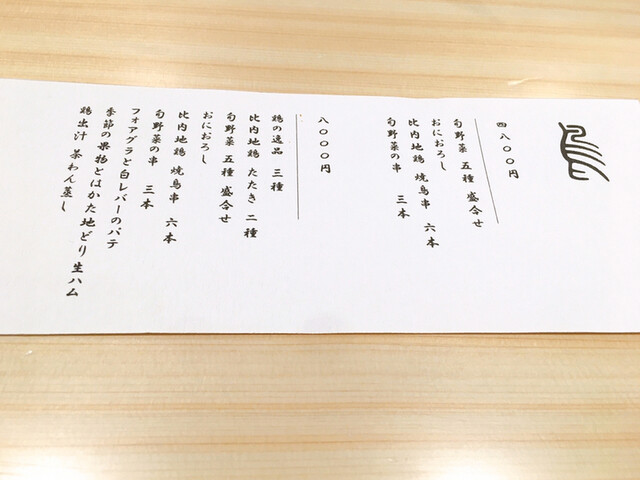 四八〇〇円
旬野菜 五種 盛合せ
おにおろし
比内地鶏 焼鳥串 六本
旬野菜の串 三本
八〇〇〇円
鶏の逸品 三種
比内地鶏 たたき 二種
旬野菜 五種 盛合せ
おにおろし
比内地鶏 焼鳥串 六本
旬野菜の串 三本
フォアグラと白レバーのパテ
季節の果物とはかた地どり生ハム
鶏出汁 茶わん蒸し